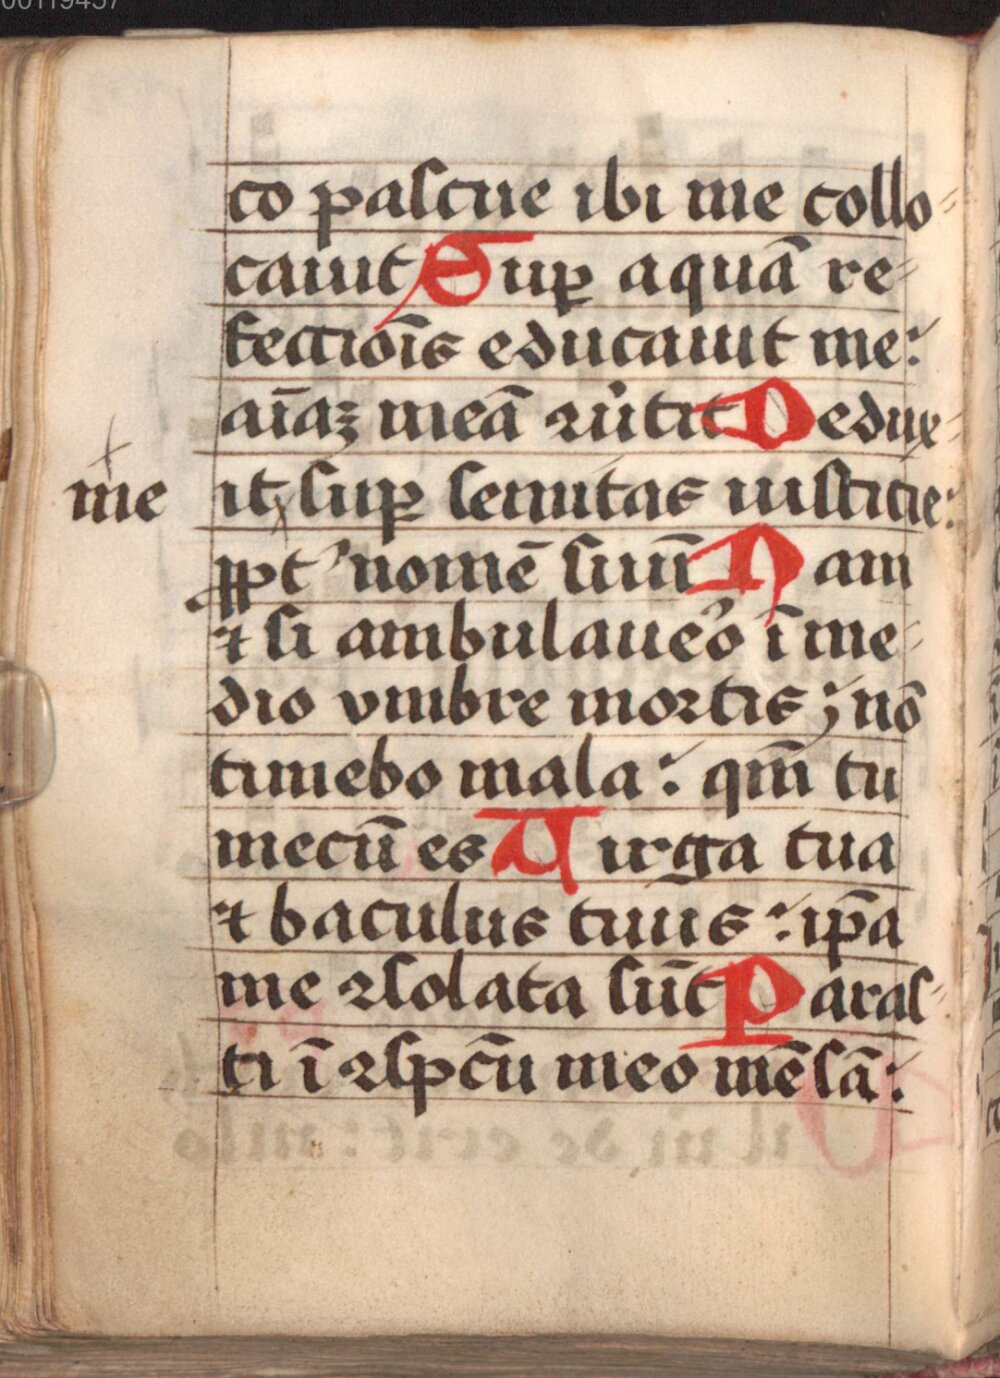 00119457
co pascue ibi me collo-
cauit Suꝑ aquā re-
fectiōis educauit me:
aīaꝫ meā ꝯũtit Dedux-
me it suꝑ semitas iusticie:
ꝓpt' nomē suū Nam
⁊ si ambulauẽo ī me-
dio vmbre mortis; nō
timebo mala: qm̄ tu
mecū es Uirga tua
⁊ baculus tuus: ip̄a
me ꝯsolata sūt Paras-
ti ī ꝯspc̄u meo mēsā: